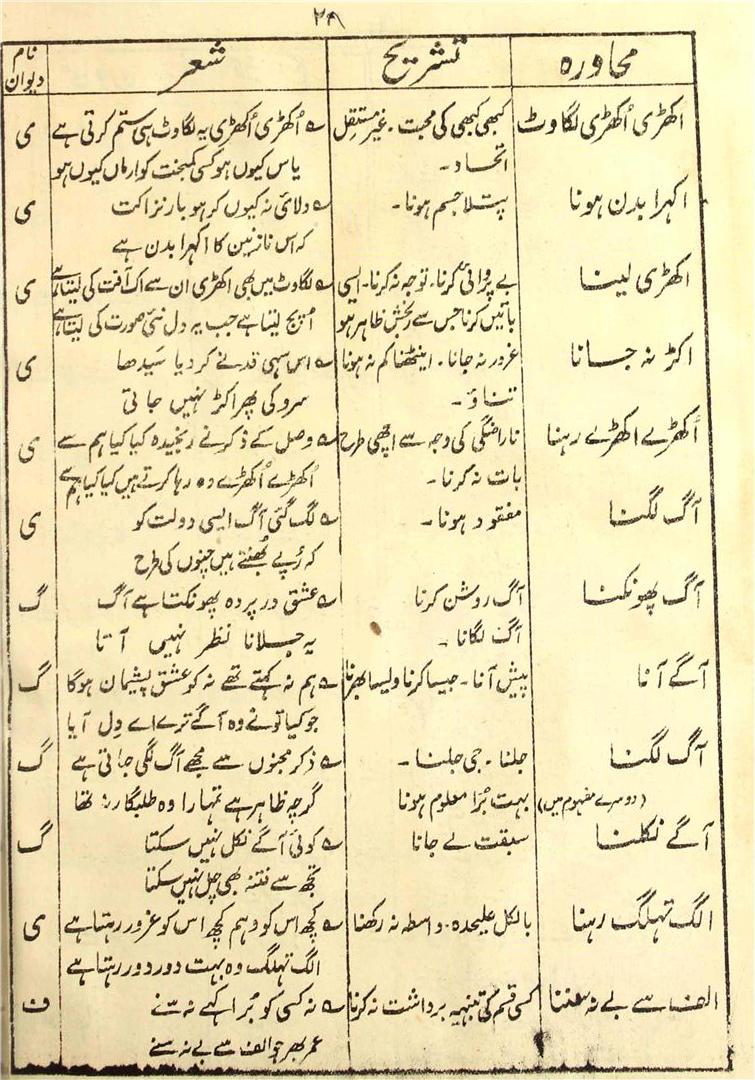 ۲۹
محاورہ تشریح شعر نام دیوان
اکھڑی اُکھڑی لگاوٹ کبھی کبھی کی محبت۔ غیر مستقل ؎ اُکھڑی اُکھڑی یہ لگاوٹ ہی ستم کرتی ہے ی
اتحاد۔ یاس کیوں ہو کسی کمبخت کو ارماں کیوں ہو
اکہرا بدن ہونا پتلا جسم ہونا۔ ؎ دلائی نہ کیوں کر ہو بار نزاکت ی
کہ اس نازنین کا اکہرا بدن ہے
اکھڑی لینا بے پروائی کرنا۔ توجہ نہ کرنا۔ ایسی ؎ لگاوٹ میں بھی اکھڑی ان سے اک آفت کی لیتا ہے ی
باتیں کرنا جس سے رنجش ظاہر ہو اُپج لیتا ہے جب یہ دل نئی صورت کی لیتا ہے
اکڑ نہ جانا غرور نہ جانا۔ اینٹھنا کم نہ ہونا ؎ اس سہی قد نے کر دیا سیدھا ی
تناؤ۔ سرو کی پھر اکڑ نہیں جاتی
اُکھڑے اکھڑے رہنا ناراضگی کی وجہ سے اچھی طرح ؎ وصل کے ذکر نے رنجیدہ کیا کیا ہم سے ی
بات نہ کرنا۔ اُکھڑے اُکھڑے وہ رہا کرتے ہیں کیا کیا ہم سے
آگ لگنا مفقود ہونا۔ ؎ لگ گئی آگ ایسی دولت کو ی
کہ رُپے بھُنتے ہیں چنوں کی طرح
آگ پھونکنا آگ روشن کرنا ؎ عشق در پردہ پھونکتا ہے آگ گ
آگ لگانا۔ یہ جلانا نظر نہیں آتا
آگے آنا پیش آنا۔ جیسا کرنا ویسا بھرنا ؎ ہم نہ کہتے تھے نہ کو عشق پشیمان ہوگا گ
جو کیا تونے وہ آگے ترے اے دِل آیا
آگ لگنا جلنا۔ جی جلنا۔ ؎ ذکر مجنوں سے مجھے آگ لگی جاتی ہے گ
(دوسرے مفہوم میں) بہت بُرا معلوم ہونا گرچہ ظاہر ہے تمہارا وہ طلبگار نہ تھا
آگے نکلنا سبقت لے جانا ؎ کوئی آگے نکل نہیں سکتا گ
تجھ سے فتنہ بھی چل نہیں سکتا
الگ تہلگ رہنا بالکل علیحدہ۔ واسطہ نہ رکھنا ؎ کچھ اس کو وہم کچھ اس کو غرور رہتا ہے ی
الگ تہلگ وہ بہت دور دور رہتا ہے
الف سے بے نہ سننا کسی قسم کی تنبیہہ برداشت نہ کرنا ؎ نہ کسی کو بُرا کہے نہ سنے ف
عمر بھر جو الف سے بے نہ سنے